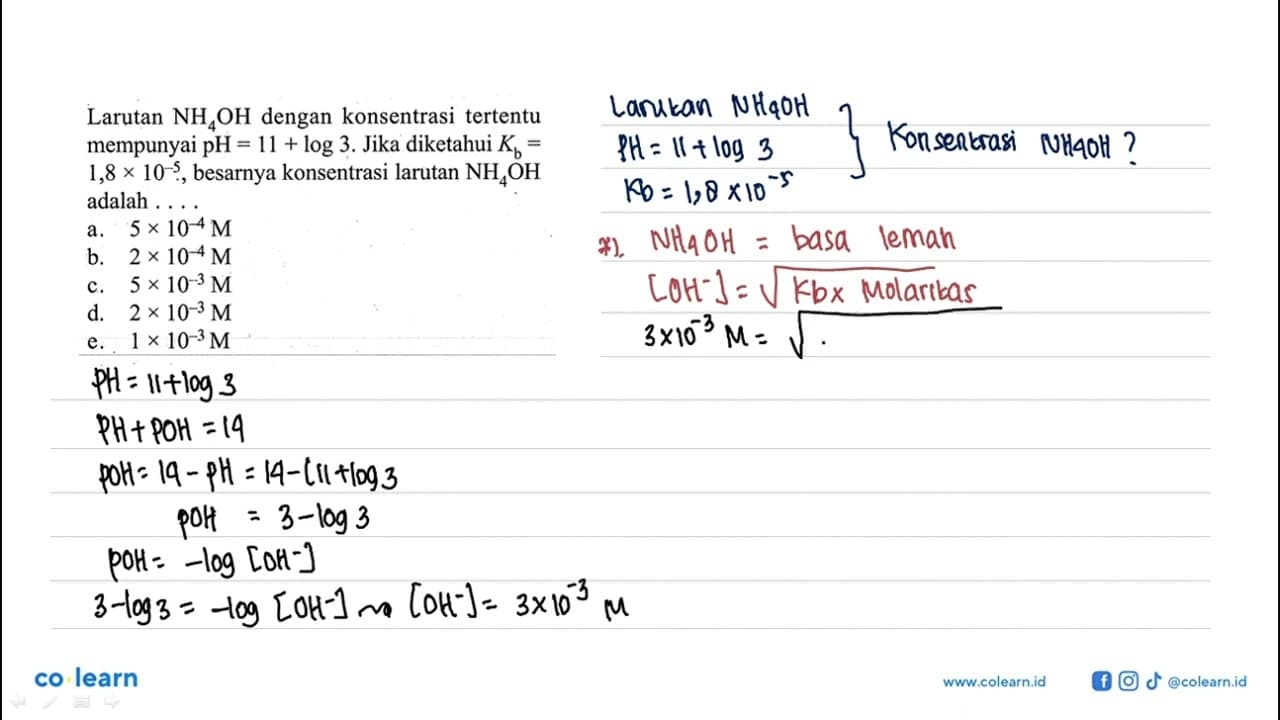 Larutan NH₄OH dengan konsentrasi tertentu
mempunyai pH = 11 + log 3. Jika diketahui K_b =
1,8 × 10⁻⁵, besarnya konsentrasi larutan NH₄OH
adalah . . . .
a. 5 × 10⁻⁴ M
b. 2 × 10⁻⁴ M
c. 5 × 10⁻³ M
d. 2 × 10⁻³ M
e. 1 × 10⁻³ M
PH = 11 + log 3
PH + POH = 14
POH = 14 - PH = 14 - (11 + log 3
POH = 3 - log 3
POH = -log [OH⁻]
3 - log 3 = -log [OH⁻] ⇝ [OH⁻] = 3 × 10⁻³ M
Larutan NH4OH
PH = 11 + log 3
Kb = 1,8 × 10⁻⁵
} Konsentrasi NH4OH ?
*). NH4OH = basa lemah
[OH⁻] = √Kb x Molaritas
3 × 10⁻³ M = √.
co learn
www.colearn.id
@colearn.id